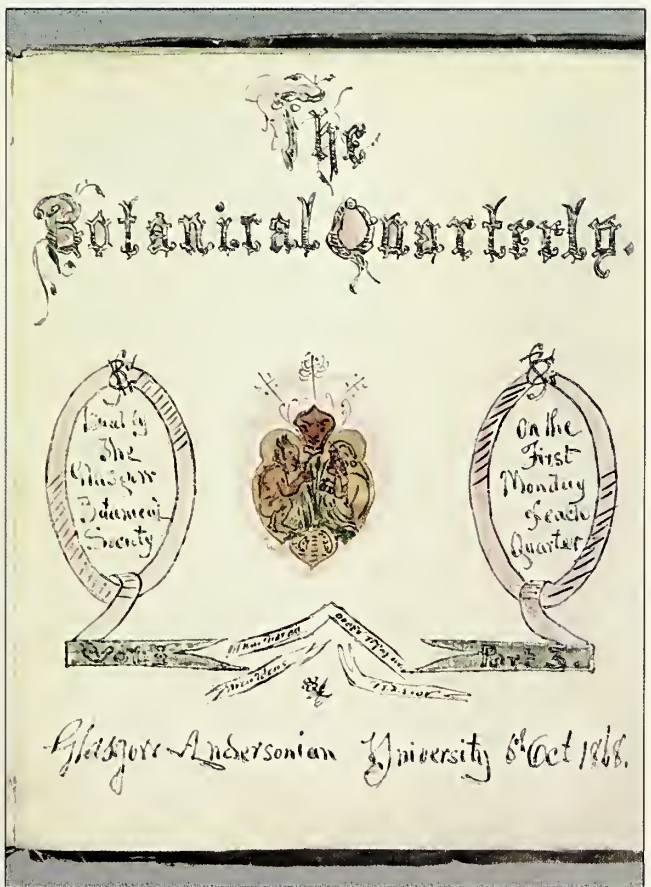 The
Botanical Quarterly.
The
Glasgow
Society
On the
First
Monday
of each
Quarter
Part 3.
Glasgow Andersonian University Oct 1868.